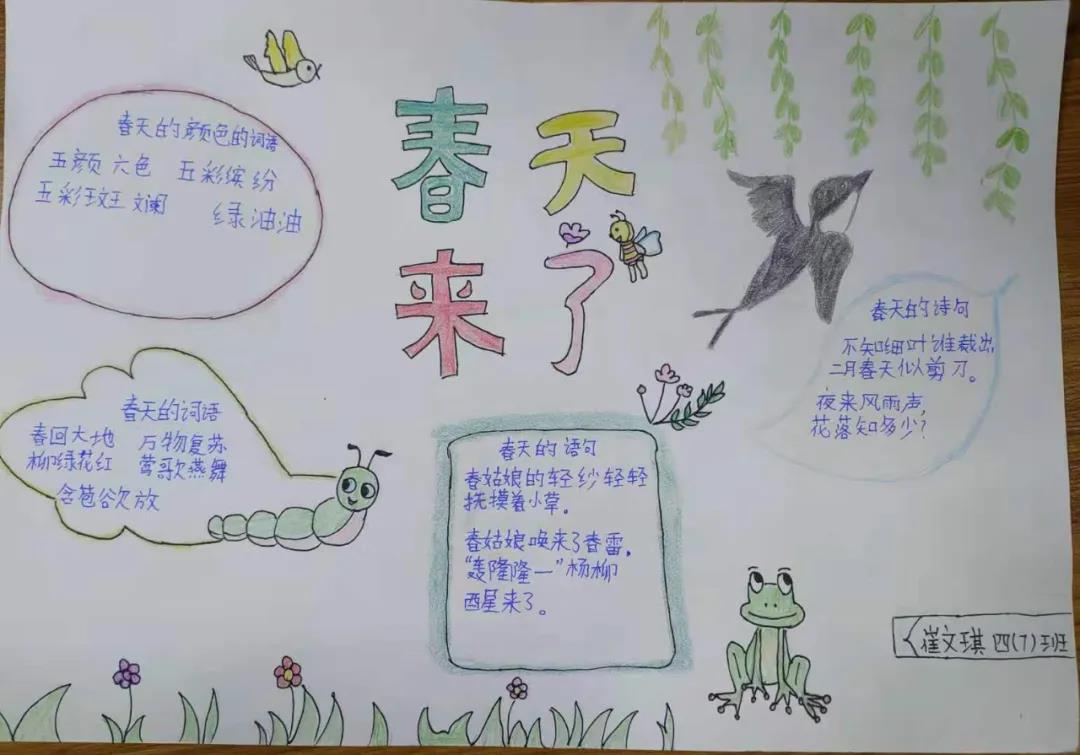 春天
来了
春天的颜色的词语
五颜六色 五彩缤纷
五彩斑斓 绿油油
春天的词语
春回大地 万物复苏
柳绿花红 莺歌燕舞
含苞欲放
春天的语句
春姑娘的轻纱轻轻
抚摸着小草。
春姑娘唤来了春雷，
“轰隆隆一”杨柳
酉星来了。
春天的诗句
不知细叶谁裁出，
二月春天似剪刀。
夜来风雨声，
花落知多少？
崔文琪 四(7)班